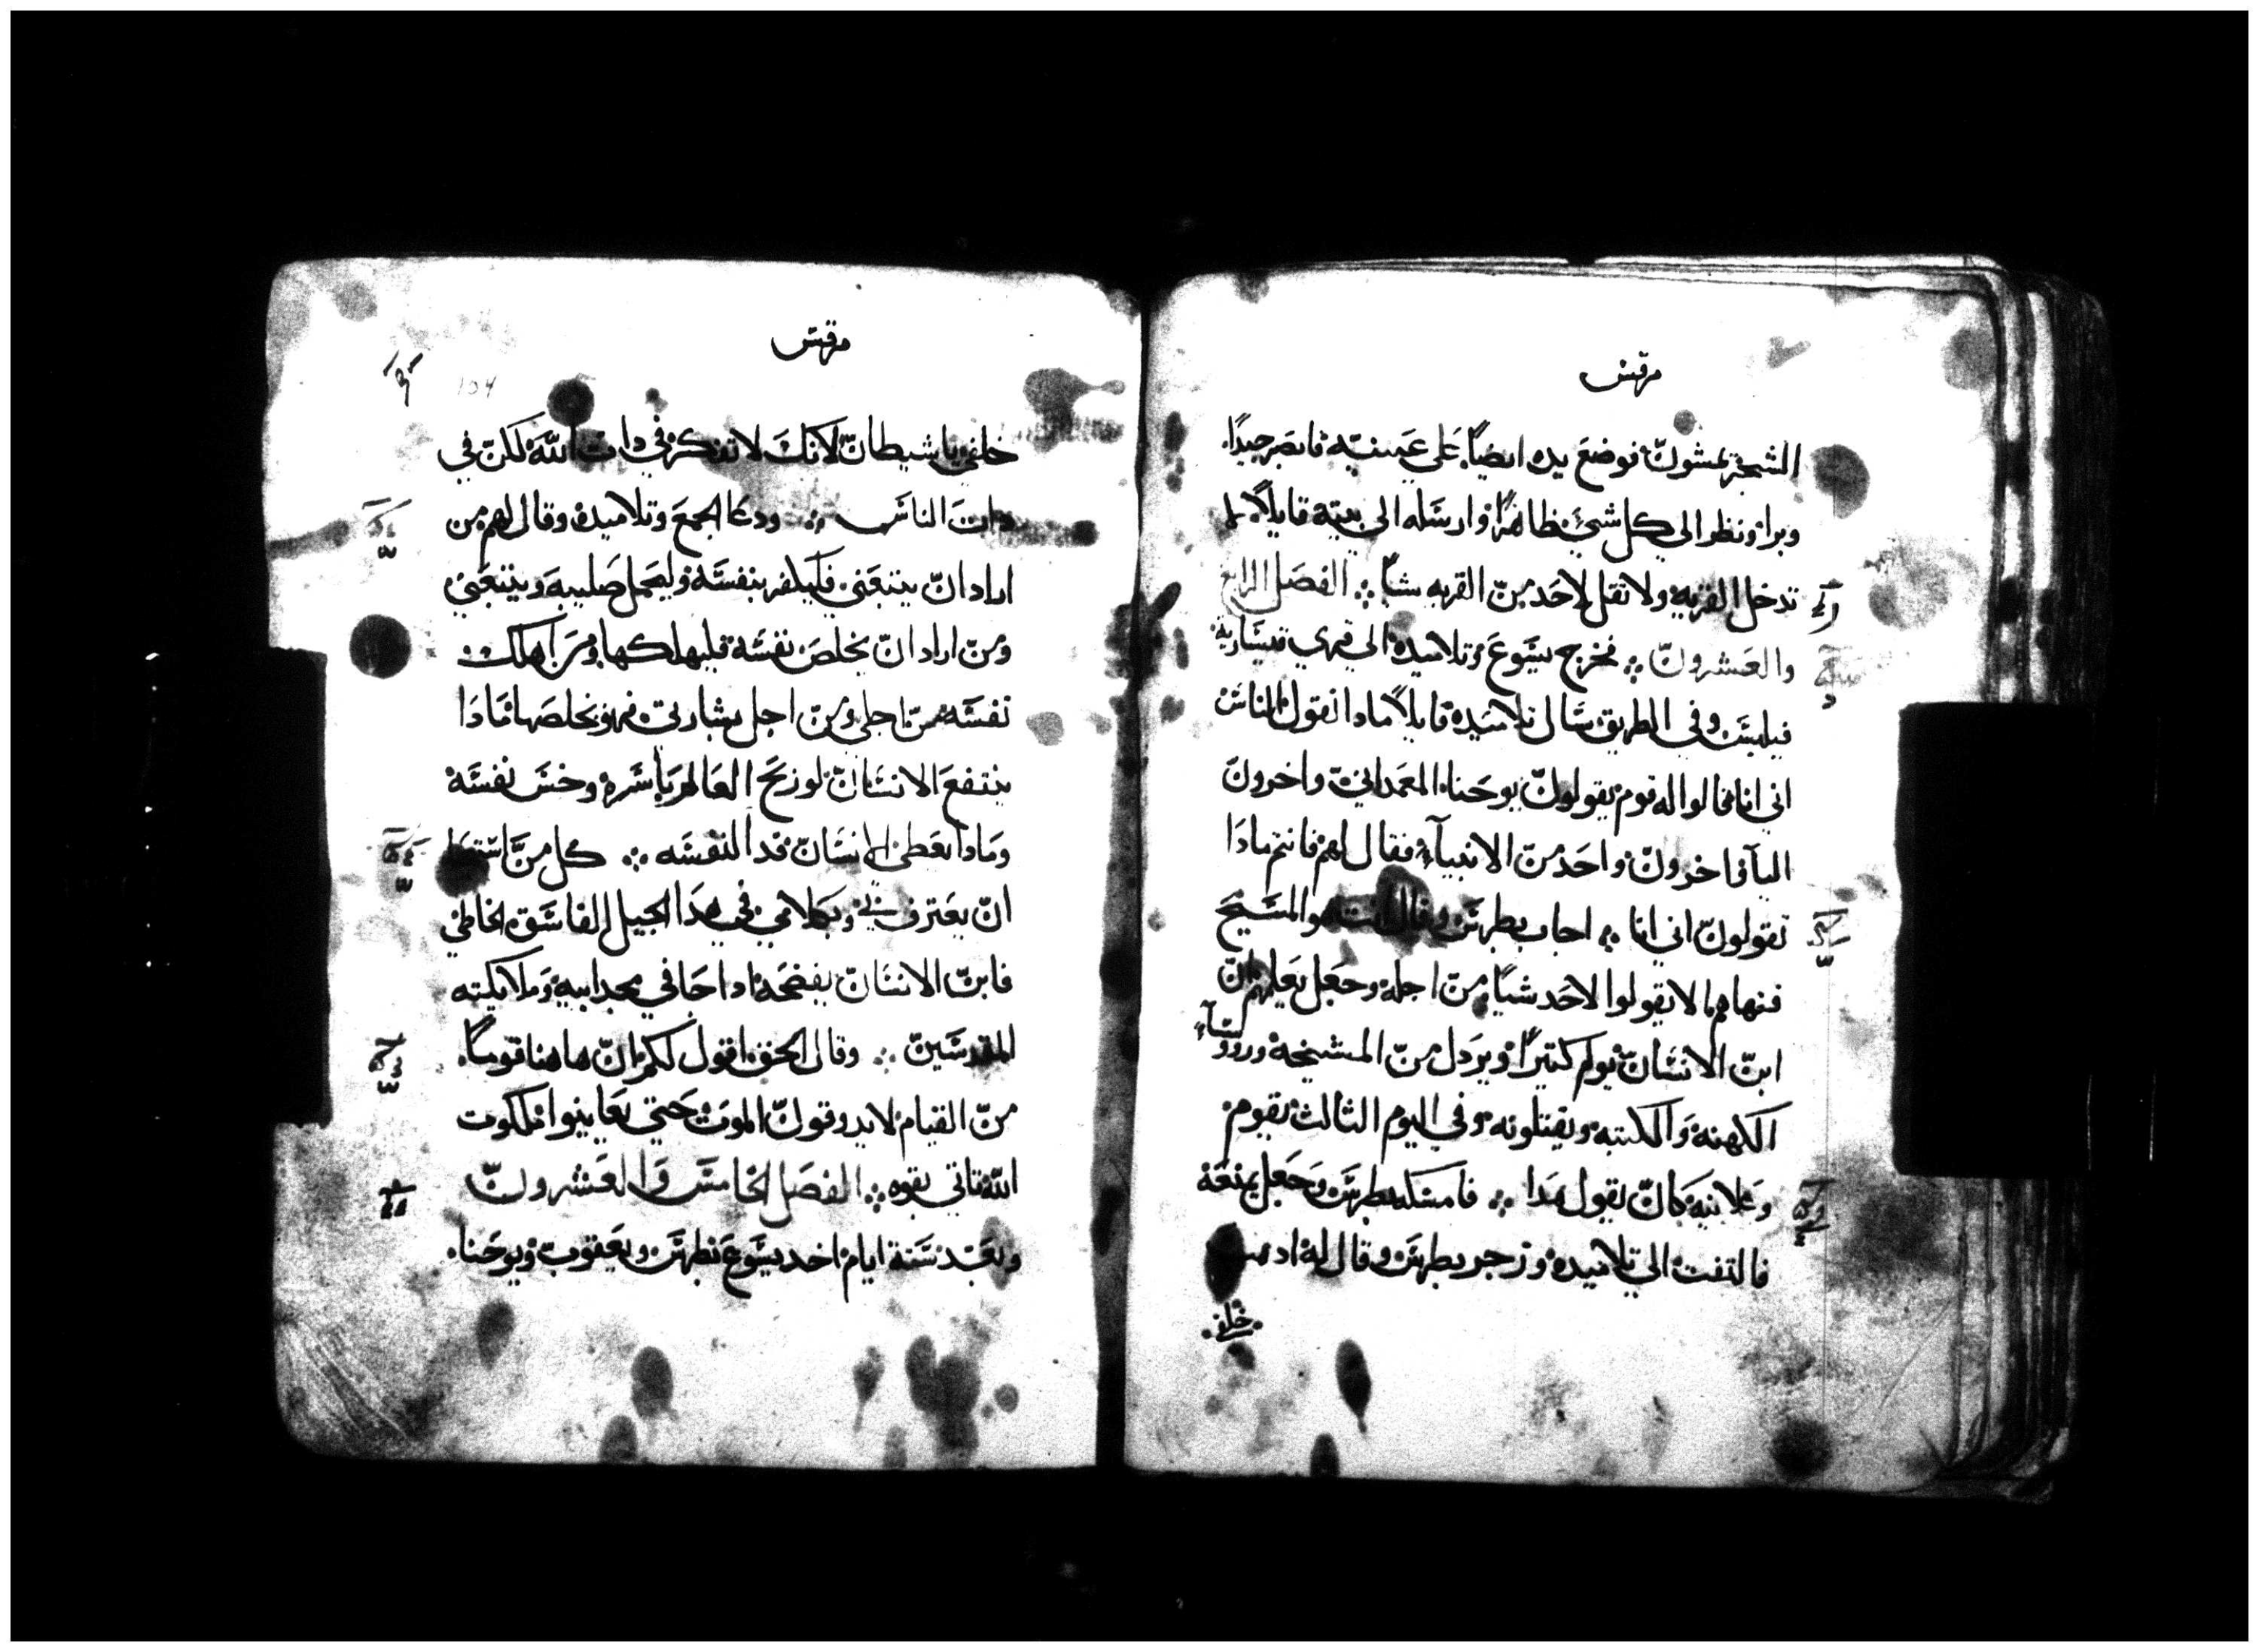 مرقس
الشجر يمشون فوضع يده ايضاً على عينيه فابصر جيداً
وبرا ونظر الى كل شي ظاهراً وارسله الى بيته قايلاً لا
تدخل القريه ولا تقل لاحد من القريه شياً الفصل الرابع
والعشرون فخرج يسوع وتلاميده الي قري قيسارية
فيلبس وفي الطريق سال تلاميده قايلاً مادا تقول الناس
اني انا فقالوا له قوم يقولون يوحنا المعمداني واخرون
اليا واخرون واحد من الانبيآء فقال لهم فانتم مادا
تقولون اني انا اجاب بطرس وقال انت هو المسيح
فنهاهم لا يقولوا لاحد شياً من اجله وجعل يعلمهم ان
ابن الانسان يولم كتيراً ويردل من المشيخة وروسآء
الكهنة والكتبه ويقتلونه وفي اليوم الثالث يقوم
وعلانية كان يقول هدا فامسكه بطرس وجعل يمنعه
فالتفت الي تلاميده وزجر بطرس وقال له ادهب
خلفي
مرقس
104
خلفي يا شيطان لانك لا تفكر في دات الله لكن في
دات الناس ودعا الجمع وتلاميده وقال لهم من
اراد ان يتبعني فليكفر بنفسه وليحمل صليبه ويتبعني
ومن اراد ان يخلص نفسه فليهلكها ومن اهلك
نفسه من اجلي ومن اجل بشارتي فهو يخلصها فمادا
ينتفع الانسان لو ربح العالم باسره وخسر نفسه
ومادا يعطي الانسان فدا لنفسه كل من استحيا
ان يعترف بي وبكلامي في هدا الجيل الفاسق الخاطي
فابن الانسان يفضحه ادا جا في مجد ابيه وملايكته
المقدسين وقال الحق اقول لكم ان هاهنا قوماً
من القيام لا يدوقون الموت حتي يعاينوا ملكوت
الله تاتي بقوه الفصل الخامس والعشرون
وبعد ستة ايام اخد يسوع بطرس ويعقوب ويوحنا